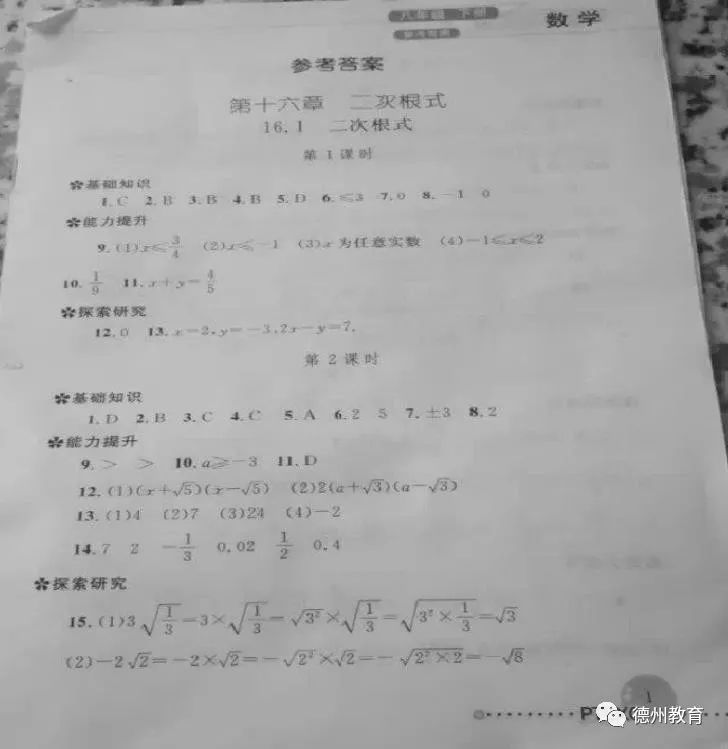 八年级 下册
数学
参考答案
参考答案
第十六章 二次根式
16.1 二次根式
第1课时
✽基础知识
1.C 2.B 3.B 4.B 5.D 6.≤3 7.0 8.-1 0
✽能力提升
9.(1)x≤3/4 (2)x≤-1 (3)x为任意实数 (4)-1≤x≤2
10.1/9 11.x+y=4/5
✽探索研究
12.0 13.x=2,y=-3,2x-y=7.
第2课时
✽基础知识
1.D 2.B 3.C 4.C 5.A 6.2 5 7.±3 8.2
✽能力提升
9.> > 10.a≥-3 11.D
12.(1)(x+√5)(x-√5) (2)2(a+√3)(a-√3)
13.(1)4 (2)7 (3)24 (4)-2
14.7 2 -1/3 0.02 1/2 0.4
✽探索研究
15.(1)3√(1/3)=3×√(1/3)=√(3²)×√(1/3)=√(3²×1/3)=√3
(2)-2√2=-2×√2=-√(2²)×√2=-√(2²×2)=-√8
1
德州教育